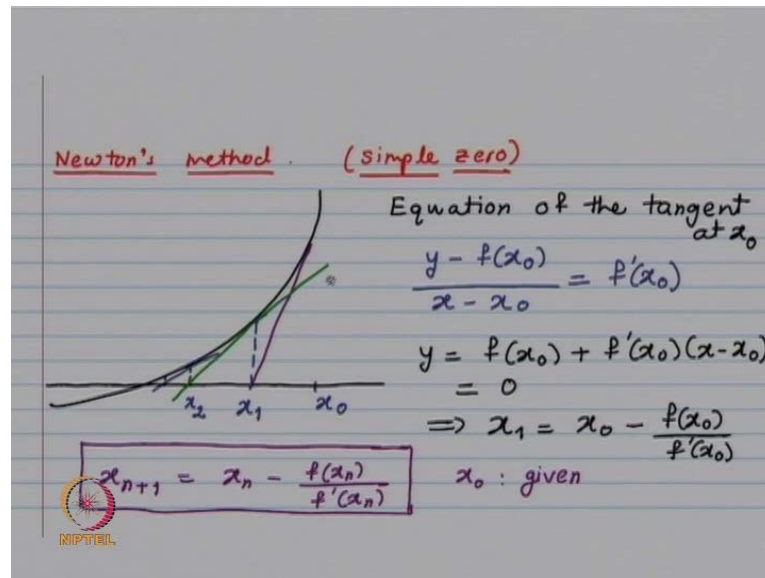 Newton's method. (simple zero)
Equation of the tangent
at x₀
y - f(x₀) / x - x₀ = f'(x₀)
y = f(x₀) + f'(x₀)(x-x₀)
= 0
⇒ x₁ = x₀ - f(x₀) / f'(x₀)
x₂ x₁ x₀
xₙ₊₁ = xₙ - f(xₙ) / f'(xₙ) x₀ : given
NPTEL